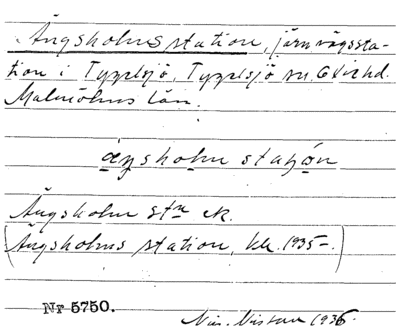 Ängsholms station, järnvägssta-
tion i Tygelsjö, Tygelsjö sn, Oxie hd.
Malmöhus län.
ängshολm station
Ängsholm stn ek.
(Ängsholms station, kk. 1935–.)
Nr 5750.
1936